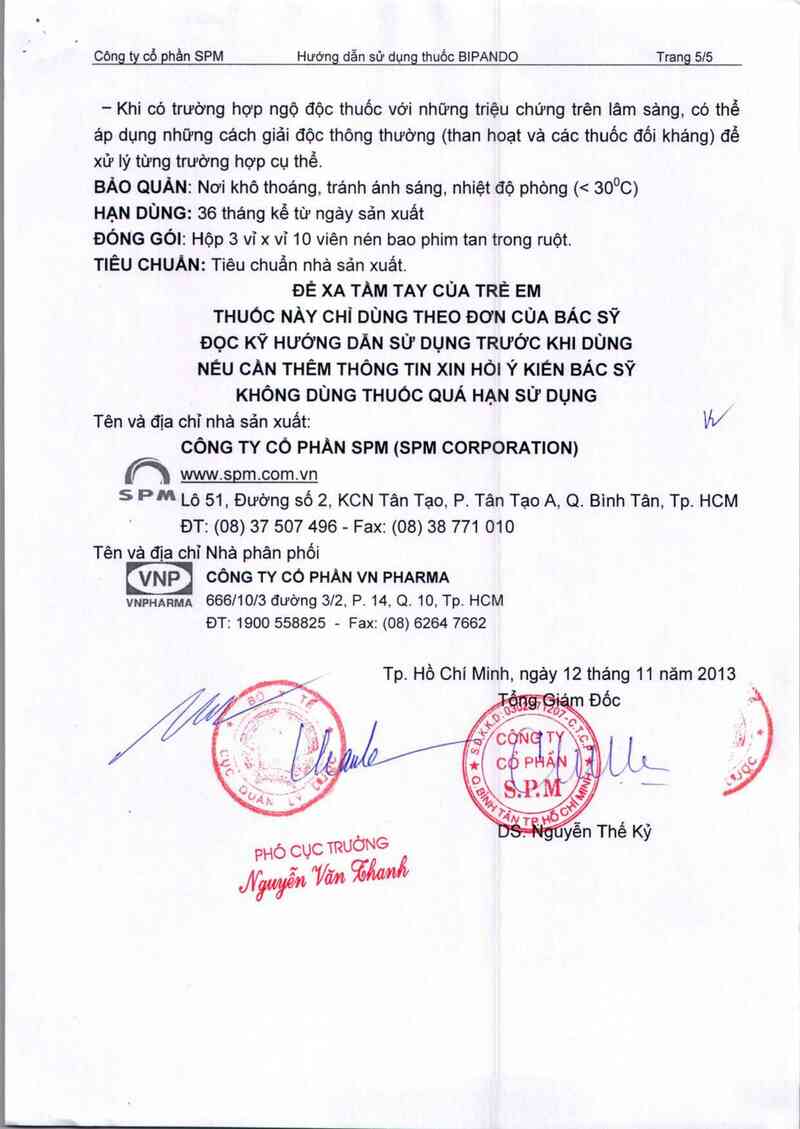 Công ty cổ phần SPM Hướng dẫn sử dụng thuốc BIPANDO Trang 5/5
– Khi có trường hợp ngộ độc thuốc với những triệu chứng trên lâm sàng, có thể
áp dụng những cách giải độc thông thường (than hoạt và các thuốc đối kháng) để
xử lý từng trường hợp cụ thể.
BẢO QUẢN: Nơi khô thoáng, tránh ánh sáng, nhiệt độ phòng (< 30⁰C)
HẠN DÙNG: 36 tháng kể từ ngày sản xuất
ĐÓNG GÓI: Hộp 3 vỉ x vỉ 10 viên nén bao phim tan trong ruột.
TIÊU CHUẨN: Tiêu chuẩn nhà sản xuất.
ĐỂ XA TẦM TAY CỦA TRẺ EM
THUỐC NÀY CHỈ DÙNG THEO ĐƠN CỦA BÁC SỸ
ĐỌC KỸ HƯỚNG DẪN SỬ DỤNG TRƯỚC KHI DÙNG
NẾU CẦN THÊM THÔNG TIN XIN HỎI Ý KIẾN BÁC SỸ
KHÔNG DÙNG THUỐC QUÁ HẠN SỬ DỤNG
Tên và địa chỉ nhà sản xuất:
CÔNG TY CỔ PHẦN SPM (SPM CORPORATION)
www.spm.com.vn
SPM Lô 51, Đường số 2, KCN Tân Tạo, P. Tân Tạo A, Q. Bình Tân, Tp. HCM
ĐT: (08) 37 507 496 - Fax: (08) 38 771 010
Tên và địa chỉ Nhà phân phối
VNP CÔNG TY CỔ PHẦN VN PHARMA
VNPHARMA 666/10/3 đường 3/2, P. 14, Q. 10, Tp. HCM
ĐT: 1900 558825 - Fax: (08) 6264 7662
Tp. Hồ Chí Minh, ngày 12 tháng 11 năm 2013
Tổng Giám Đốc
BỘ Y TẾ
CỤC QUẢN LÝ DƯỢC
CÔNG TY
CỔ PHẦN
S.P.M
Q.BÌNH TÂN TP.HỒ CHÍ MINH
DƯỢC
DS. Nguyễn Thế Kỷ
PHÓ CỤC TRƯỞNG
Nguyễn Văn Thanh